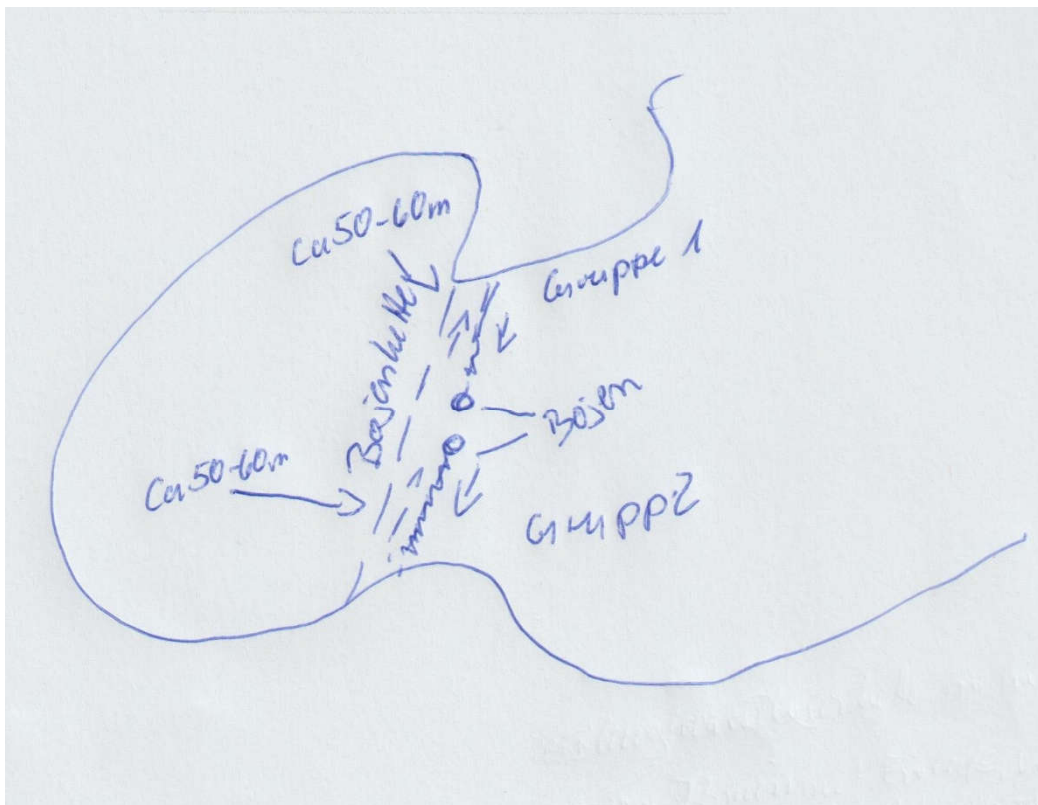 Ca 50-60m
Gruppe 1
Bojenkette
Bojen
Ca 50-60m
Grupp2